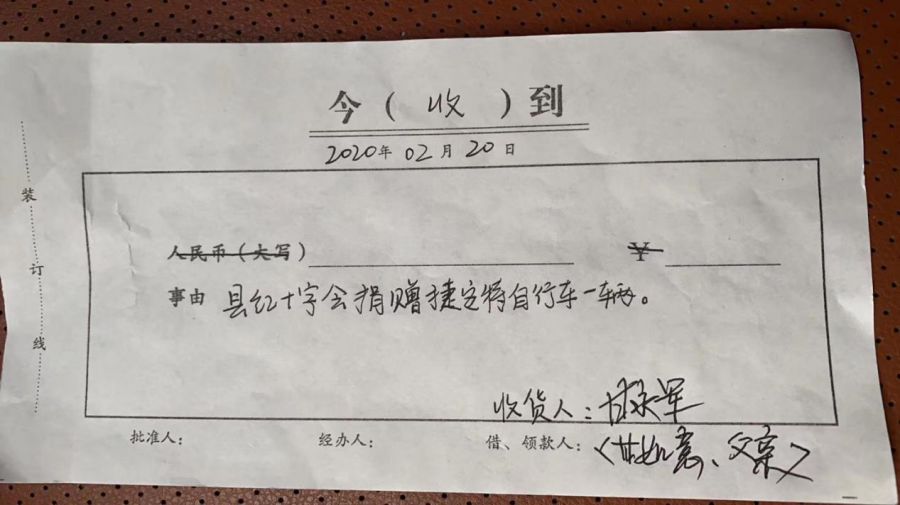 今（收）到
2020年02月20日
人民币（大写） ￥
事由 县红十字会捐赠捷安特自行车一辆。
收货人：甘永军
批准人： 经办人： 借、领款人：〈甘如意、父亲〉
装订线